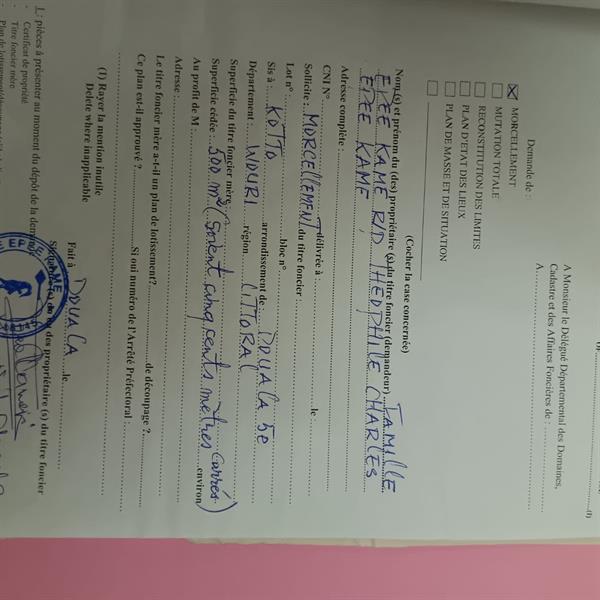 (I)
A Monsieur le Délégué Départemental des Domaines,
Cadastre et des Affaires Foncières de : ..................
A..................
Demande de :
MORCELLEMENT
MUTATION TOTALE
RECONSTITUTION DES LIMITES
PLAN D'ETAT DES LIEUX
PLAN DE MASSE ET DE SITUATION
(Cocher la case concernée)
Nom (s) et prénom du (des) propriétaire (s) du titre foncier (demandeur)....FAMILLE
EPEE KAME R/D THEOPHILE CHARLES
EPEE KAME,
Adresse complète :..................
CNI N°..................délivrée à :..................le..................
Sollicite : MORCELLEMENT du titre foncier..................
Lot n°..................bloc n°..................
Sis à.....KOTTO.....arrondissement de...DOUALA 5e
Département :...WOURI.....région...LITTORAL
Superficie du titre foncier mère..................
Superficie cédée : 500 m² (soient cinq cents mètres carrés) environ
Au profit de M :..................
Adresse :..................
Le titre foncier mère a-t-il un plan de lotissement?..................de découpage ?..................
Ce plan est-il approuvé ?..................Si oui numéro de l'Arrêté Préfectoral :..................
(I) Rayer la mention inutile
Delete where inapplicable
Fait à DOUALA le..................
du des propriétaire (s) du titre foncier
1.: pièces à présenter au moment du dépôt de la demande
- Certificat de propriété
- Titre foncier mère